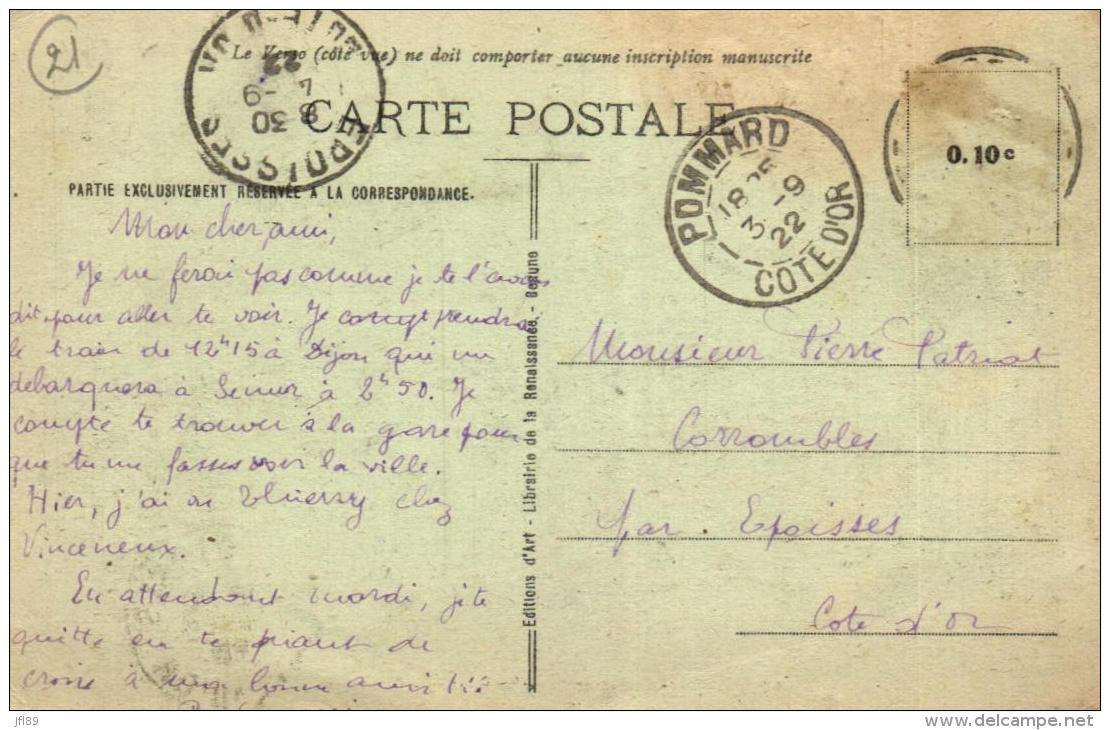 21
Le Verso (côté vue) ne doit comporter aucune inscription manuscrite
CARTE POSTALE
EPOISSES
COTE-D'OR
8 30
4 -9
22
POMMARD
18 25
3 -9
22
COTE D'OR
0.10 c
PARTIE EXCLUSIVEMENT RÉSERVÉE A LA CORRESPONDANCE.
Mon cher ami,
Je ne ferai pas comme je te l'avais
dit pour aller te voir. Je compt prendre
le train de 12h15 à Dijon qui me
debarquera à Semur à 2h50. Je
compte te trouver à la gare pour
que tu me fasses voir la ville.
Hier, j'ai vu Thierry chez
Vinceneux.
En attendant mardi, je te
quitte en te priant de
croire à ma bonne amitié
Editions d'Art - Librairie de la Renaissance. - Beaune
Monsieur Pierre Patriat
Corrombles
par Epoisses
Cote d'Or
jfl89
delcampe.net